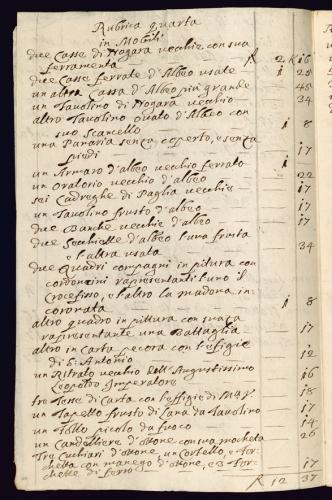 Rubrica quarta
in Mobili
due Casse di Nogara vecchie con sua
ferramenta R 2 K 16
due Casse ferrate d'Albeo usate 1 20
un altra Cassa d'Albeo più grande 45
un Tavolino di Nogara vecchio 34
altro Tavolino ovato d'Albeo con
suo Scancello 1 8
una Panaria senza coperto, e senza
piedi 17
un Armaro d'albeo vecchio ferrato 1
un oratorio vecchio d'albeo 22
sei Cadreghe di Paglia vecchie 17
un Tavolino frusto d'albeo 17
due Banche vecchie d'albeo 17
due Secchiette d'albeo l'una frusta
e l'altra usata 34
due Quadri compagni in pitura con
cordoncini rapresentanti l'uno il
Crocefisso, e l'altro la madona in
coronata 1 8
altro quadro in pittura con
rapresentante una Battaglia 17
altro in Carta pecora con l'effigie
di S. Antonio 12
un Ritrato vecchio dell'Augustissimo
Leopoldo Imperatore 16
tre Teste di Carta con l'effigie di 18
un Tapetto frusto di Lana da Tavolino 17
un follo picolo da fuoco 14
un Candelliere d'ottone con sua mocheta 26
Tre Cuchiari d'ottone, un Cortello, e for-
chetta con manego d'ottone, e 3 for-
chette di ferro 17
R 12 37